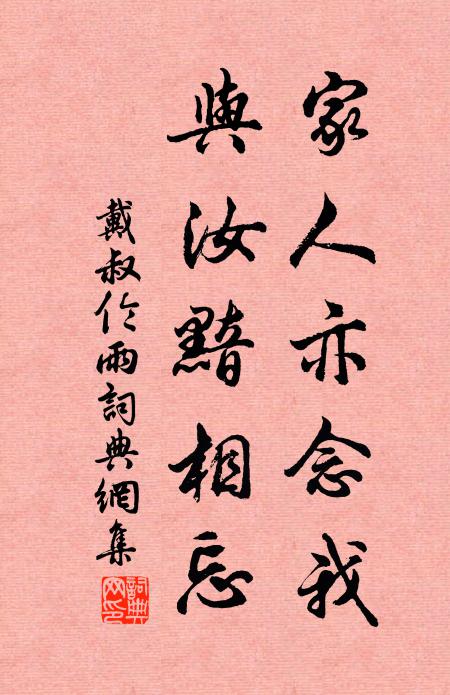 家人亦念我
與汝黯相忘
戴叔伦雨詞典網集
詞典网印